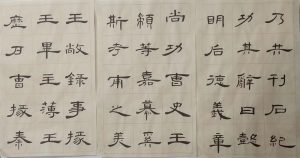 乃共刊石紀
功其辭曰懿
明后德義章
尚功曹史王
顓等嘉慕奚
斯考甫之美
王敞錄事掾
王畢主薄王
歷戶曹掾秦